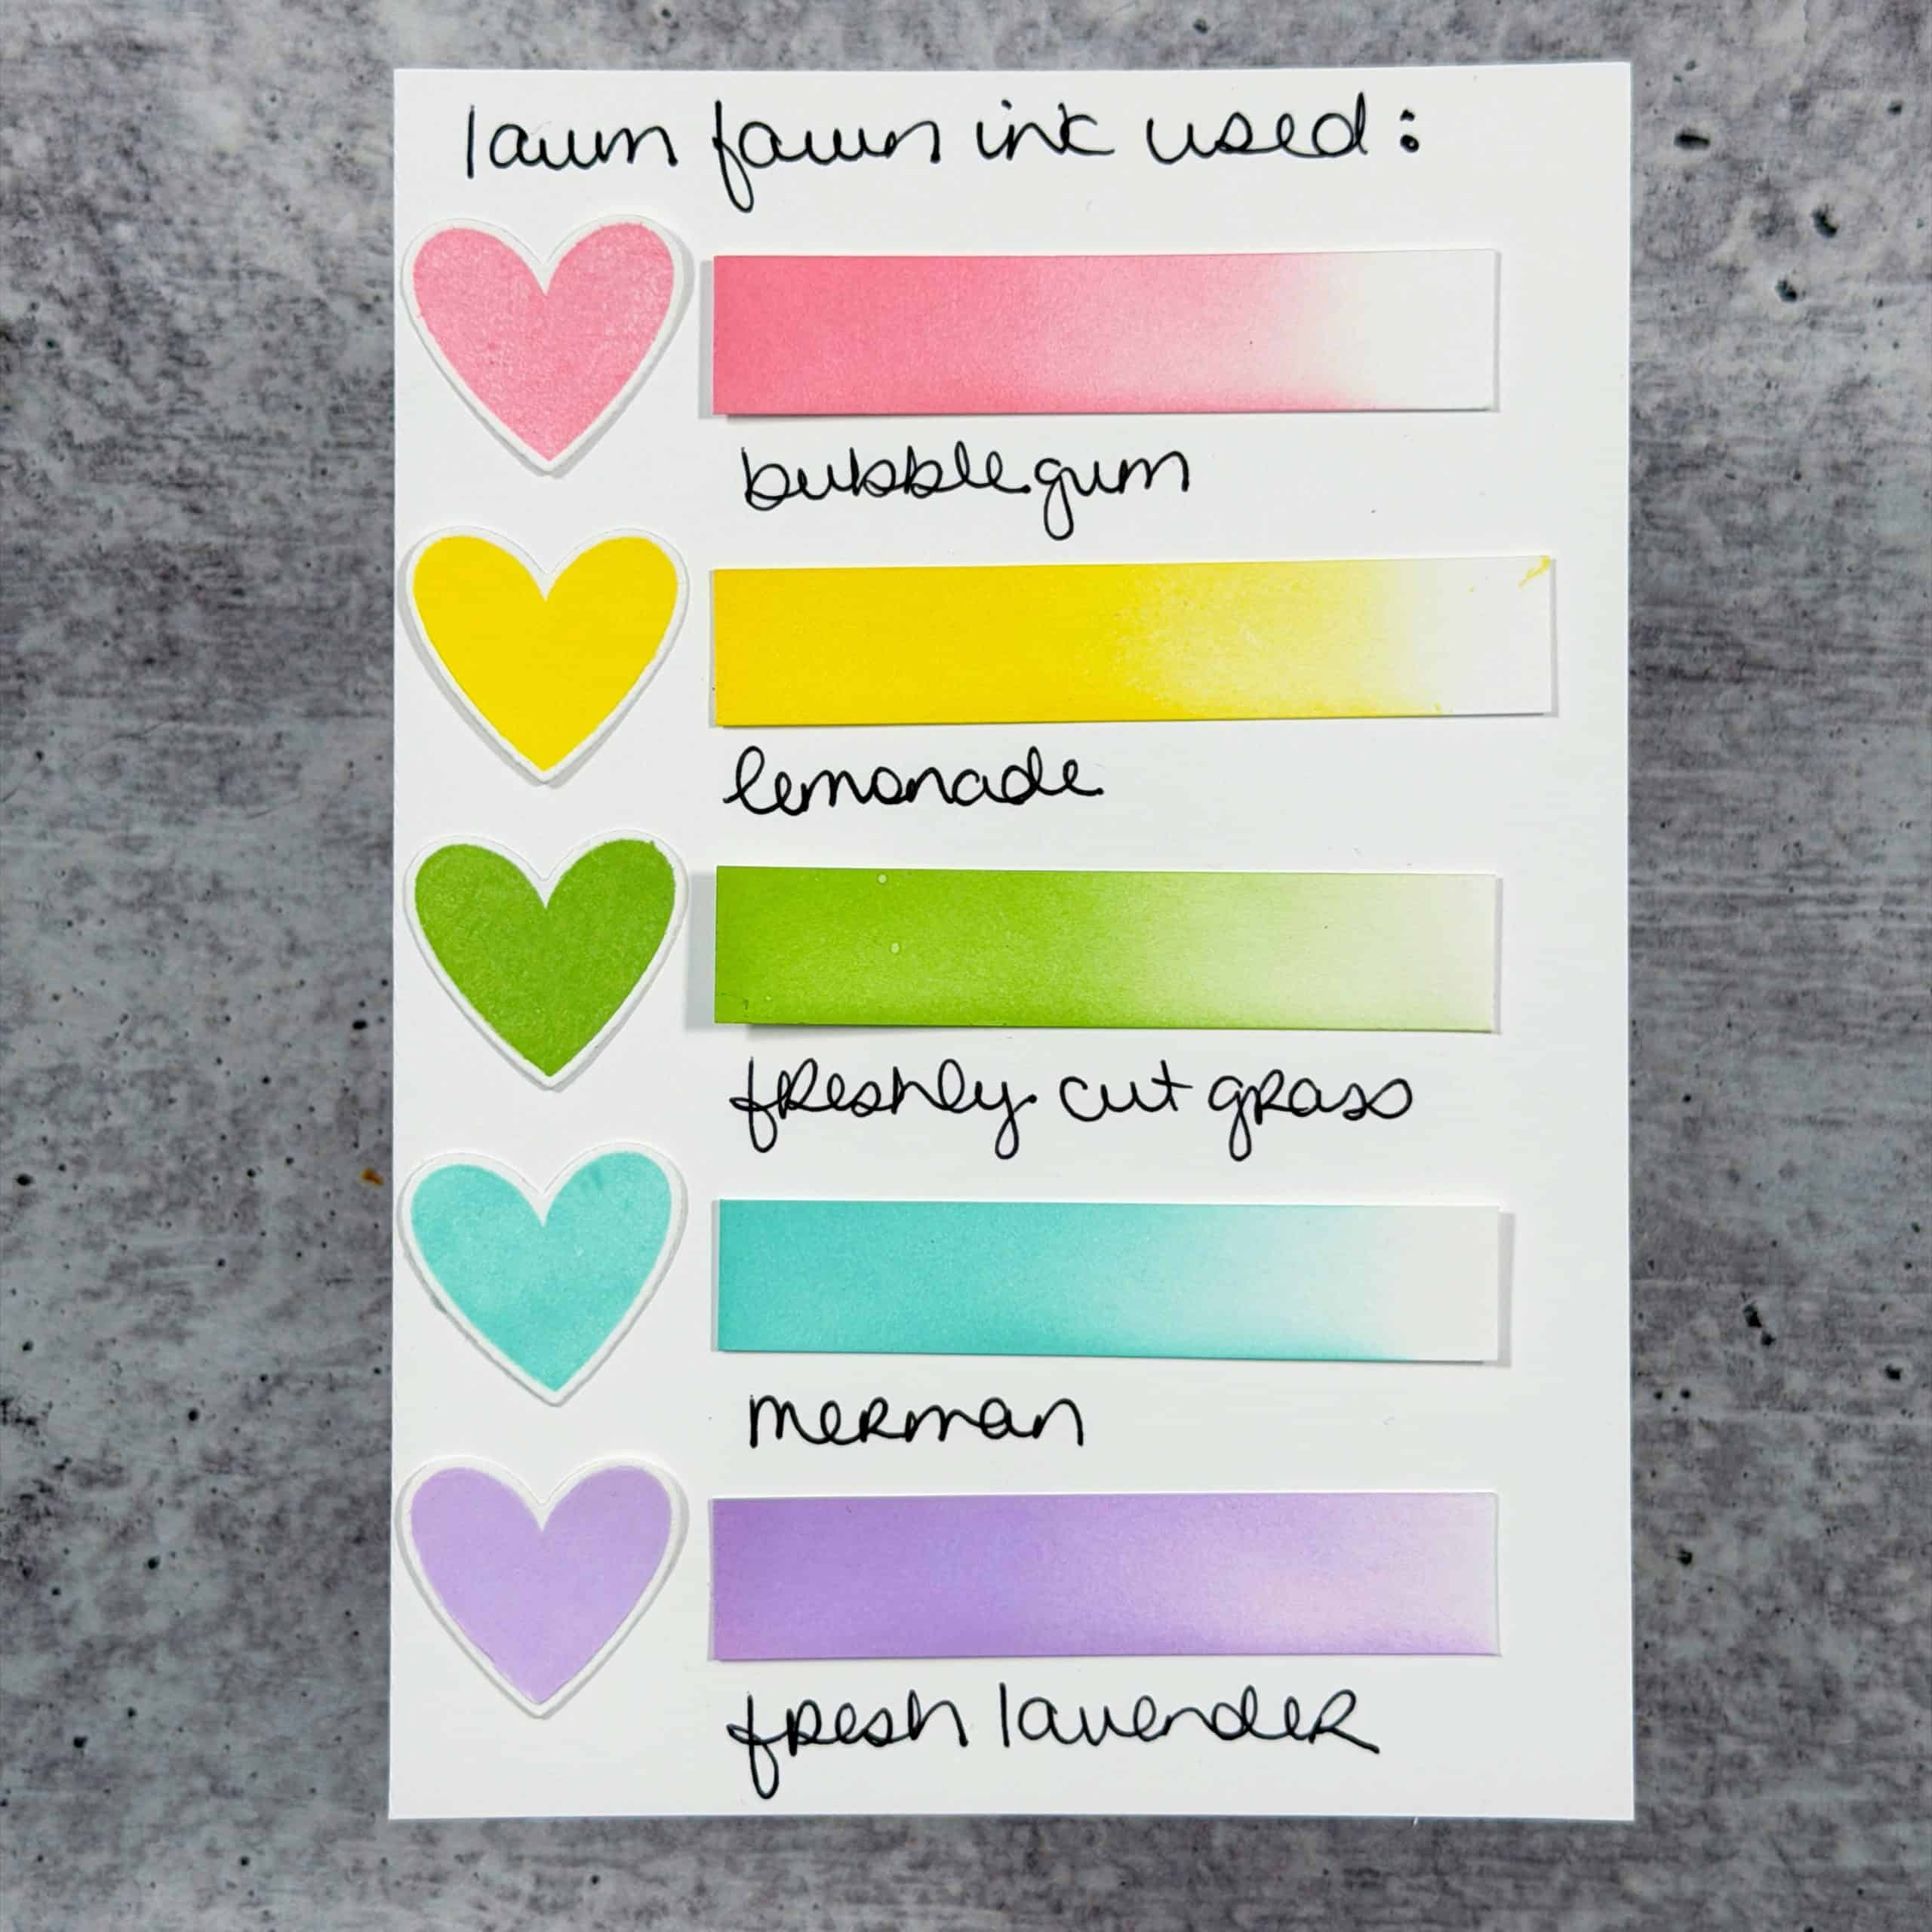 lawn fawn ink used:
bubblegum
lemonade
freshly cut grass
merman
fresh lavender